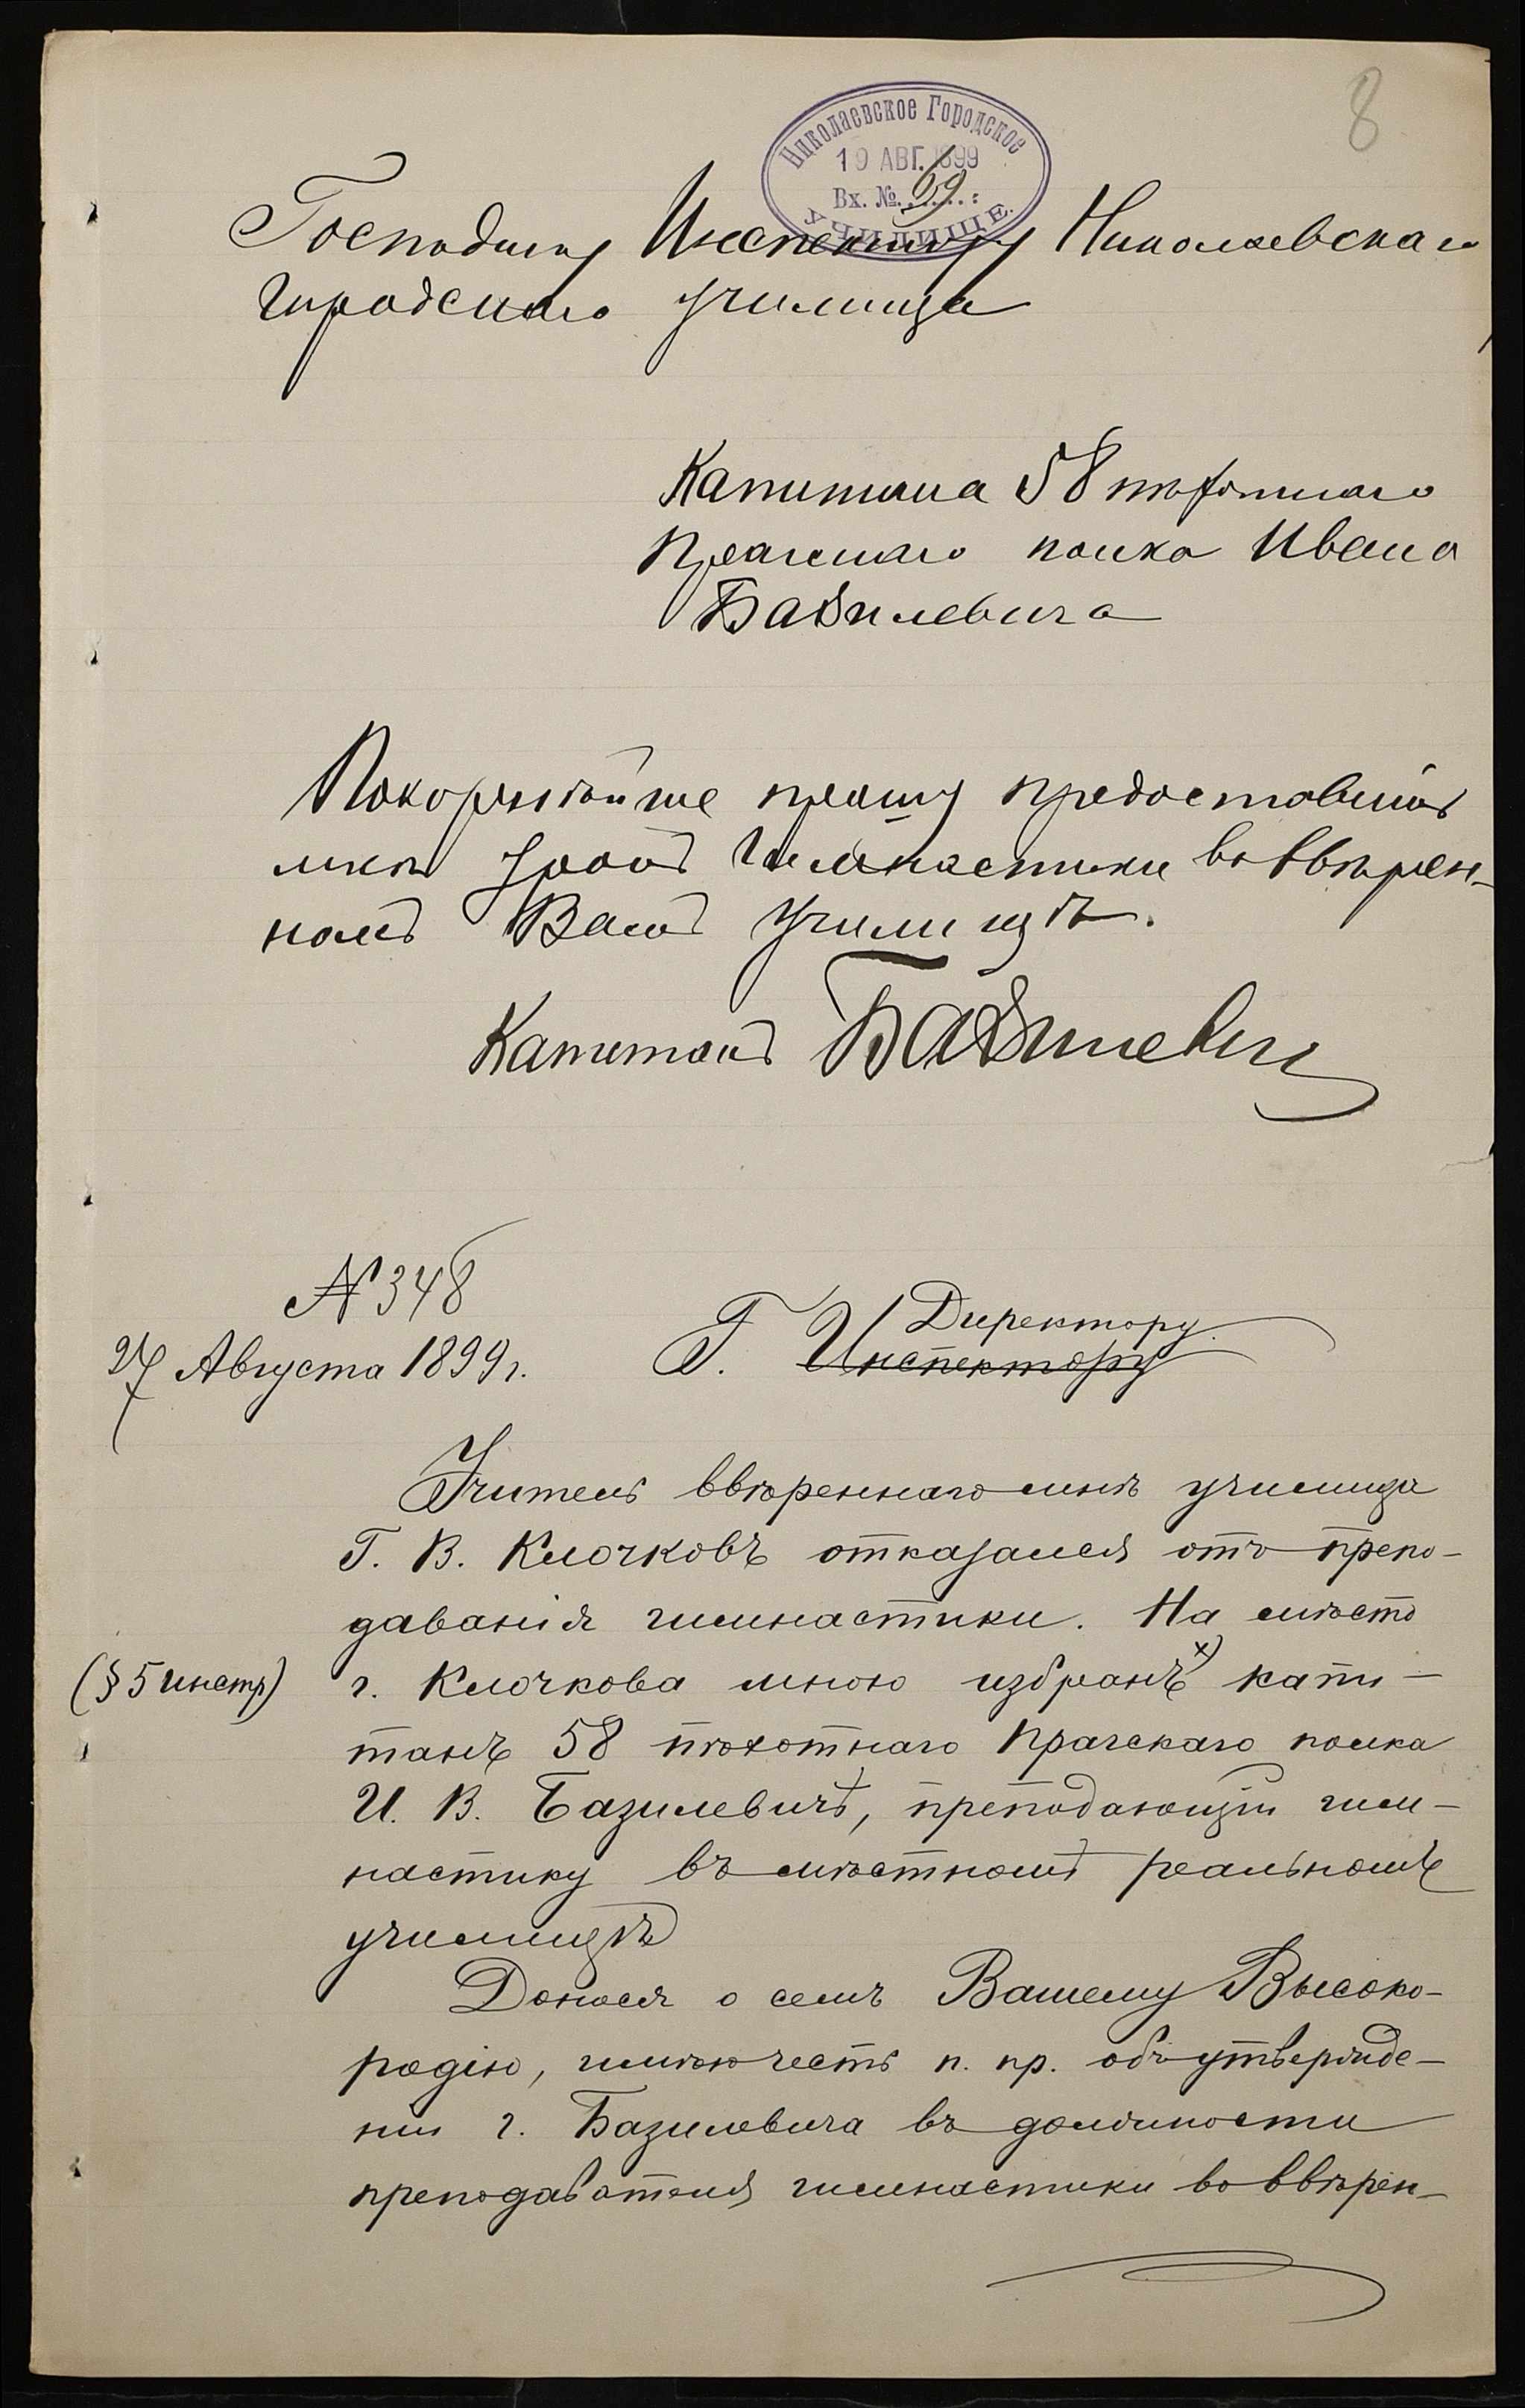 8
Николаевское Городское
19 АВГ. 1899
Вх. № 69
УЧИЛИЩЕ.
Господину Инспектору Николаевскаго
Городскаго училища
Капитана 58 пѣхотнаго
Пражскаго полка Ивана
Базилевича
Покорнѣйше прошу предоставить
мнѣ уроки Гимнастики во ввѣрен-
номъ Вамъ училищѣ.
Капитанъ Базилевич
№ 348
27 Августа 1899 г.
Директору
Г. Инспектору
Учитель ввѣреннаго мнѣ училища
Г. В. Клочковъ отказался отъ препо-
даванія гимнастики. На мѣсто
(§ 5 инстр) г. Клочкова мною избранъ x) капи-
танъ 58 пѣхотнаго Пражскаго полка
И. В. Базилевичъ, преподающій гим-
настику въ мѣстномъ реальномъ
училищѣ
Донося о семъ Вашему Высоко-
родію, имѣю честь п. пр. объ утвержде-
ніи г. Базилевича въ должности
преподавателя гимнастики во ввѣрен-